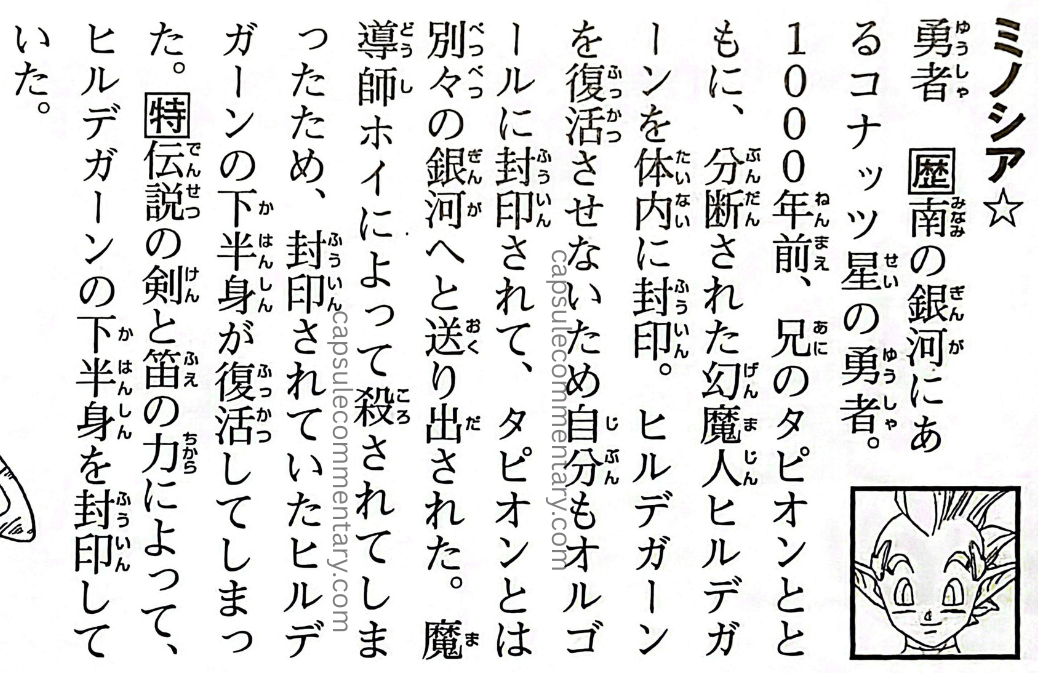 ミノシア☆
勇者　歴南の銀河にあ
るコナッツ星の勇者。
1000年前、兄のタピオンとと
もに、分断された幻魔人ヒルデガ
ーンを体内に封印。ヒルデガーン
を復活させないため自分もオルゴ
ールに封印されて、タピオンとは
別々の銀河へと送り出された。魔
導師ホイによって殺されてしま
ったため、封印されていたヒルデ
ガーンの下半身が復活してしまっ
た。特伝説の剣と笛の力によって、
ヒルデガーンの下半身を封印して
いた。
capsulecommentary.com
capsulecommentary.com